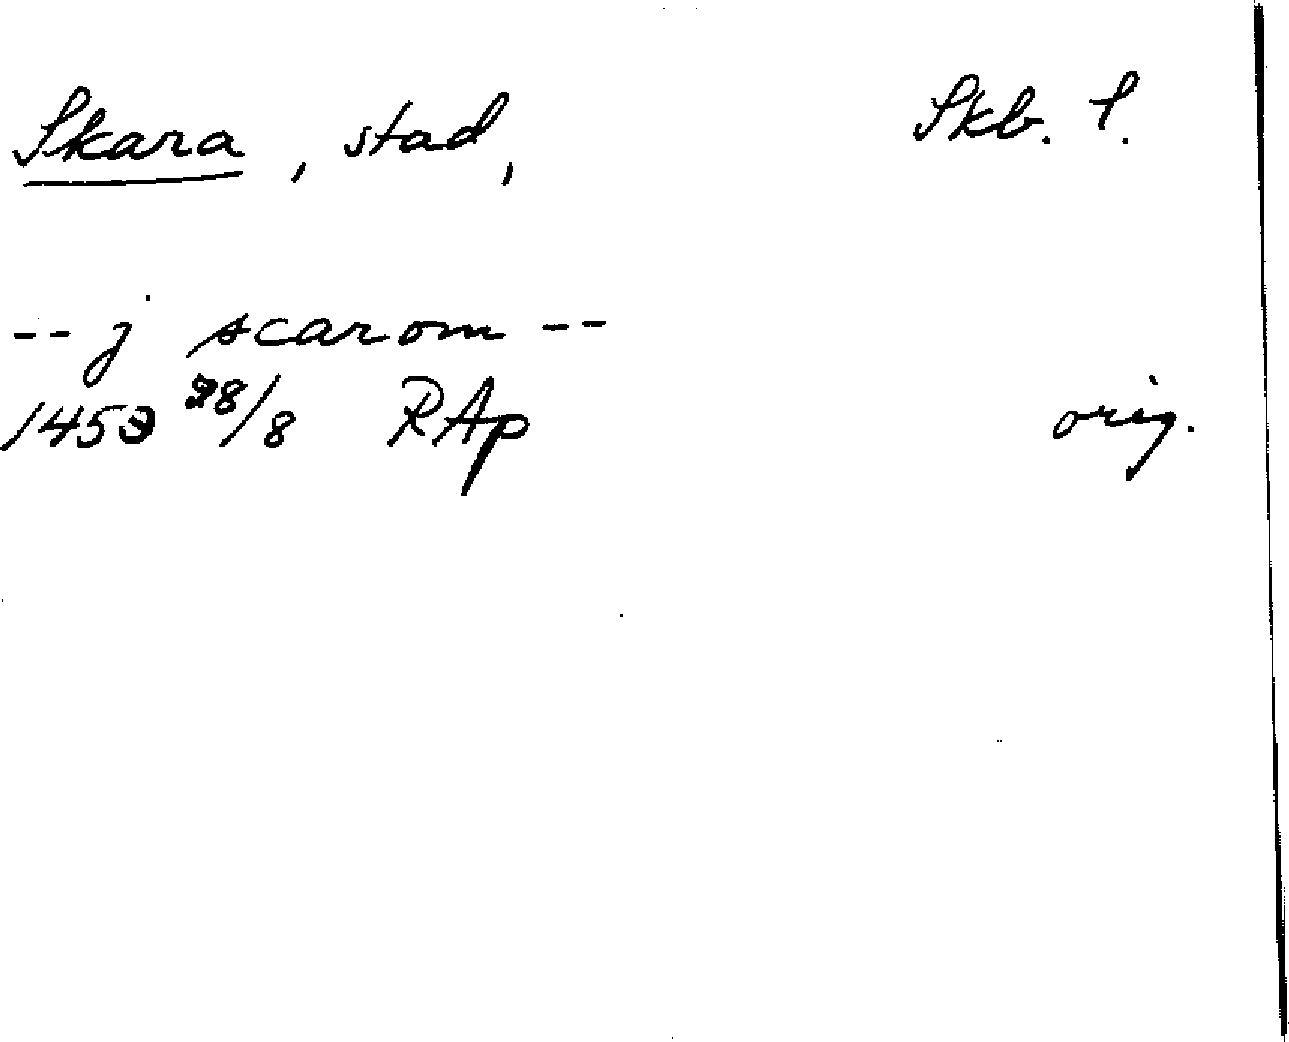 Skara, stad, Skb. l.
-- j scarom --
1453 28/8 RAp orig.